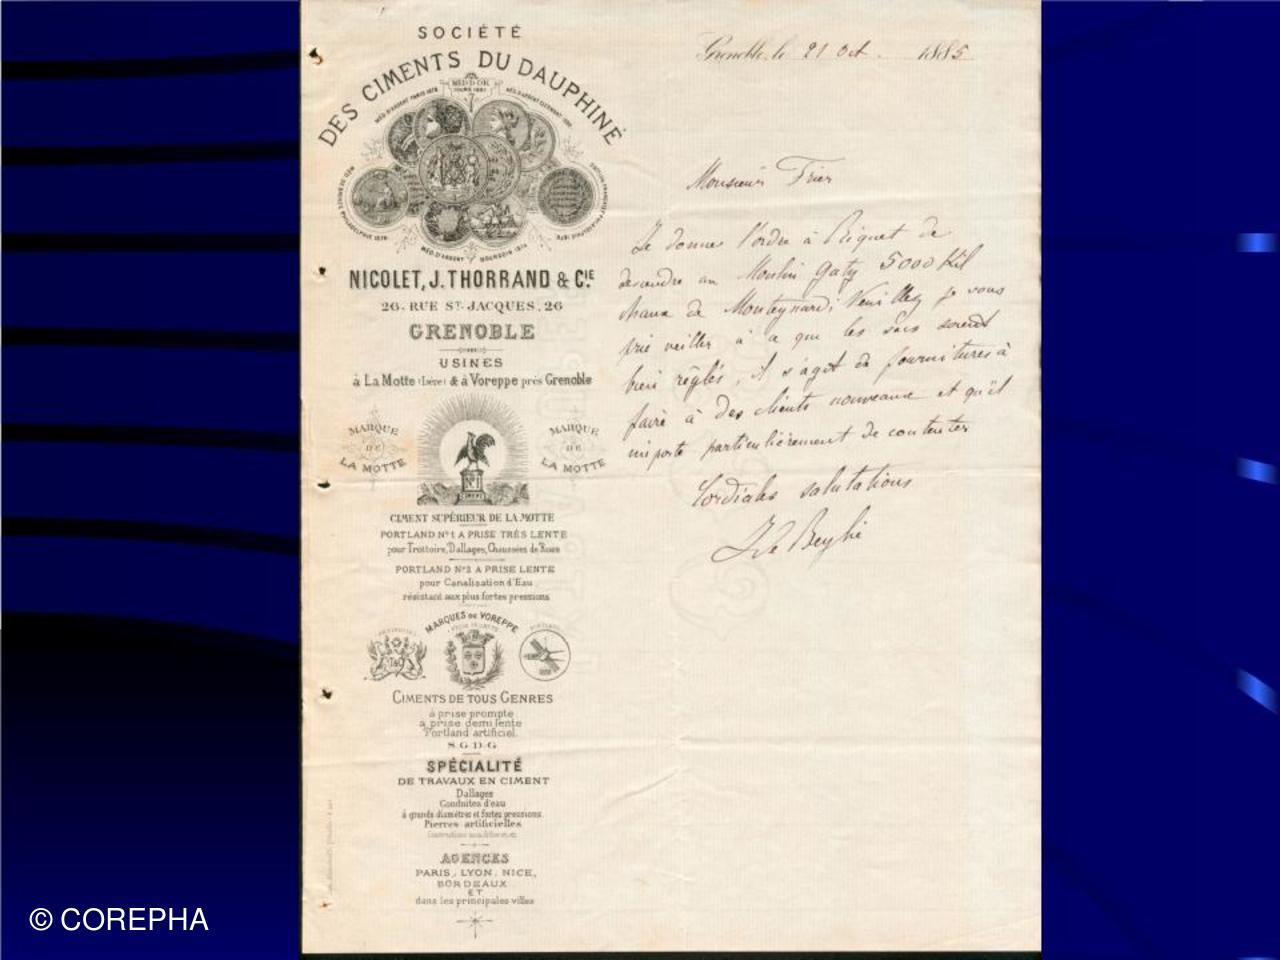 SOCIÉTÉ
DES CIMENTS DU DAUPHINÉ
MÉD. D'ARGENT PARIS 1878
MÉD. D'OR
TOURS 1881
MÉD. D'ARGENT CLERMONT 1880
MÉD. DE BRONZE PHILADELPHIE 1876
MÉD. D'ARGENT BOURGOIN 1874
NICOLET, J. THORRAND & CIE.
26, RUE ST. JACQUES, 26
GRENOBLE
USINES
à La Motte (Isère) & à Voreppe près Grenoble
MARQUE DE LA MOTTE
MARQUE DE LA MOTTE
N°1
CIMENT
CIMENT SUPÉRIEUR DE LA MOTTE
PORTLAND N°1 A PRISE TRÈS LENTE
pour Trottoirs, Dallages, Chaussées de Roues
PORTLAND N°2 A PRISE LENTE
pour Canalisation d'Eau
résistant aux plus fortes pressions
MARQUES DE VOREPPE
CIMENTS DE TOUS GENRES
à prise prompte
à prise demi lente
Portland artificiel.
S.G.D.G
SPÉCIALITÉ
DE TRAVAUX EN CIMENT
Dallages
Conduites d'eau
à grands diamètres et fortes pressions.
Pierres artificielles
AGENCES
PARIS, LYON, NICE,
BORDEAUX
ET
dans les principales villes
Grenoble, le 21 Oct. 1885
Monsieur Frier
Je donne l'ordre à Riquet de
descendre au Moulin Gaty 5000 Kil
chaux de Monteynard; Veuillez je vous
prie veiller à ce que les sacs soient
bien réglés, il s'agit de fournitures à
faire à des clients nouveaux et qu'il
importe particulièrement de contenter
Cordiales salutations
© COREPHA